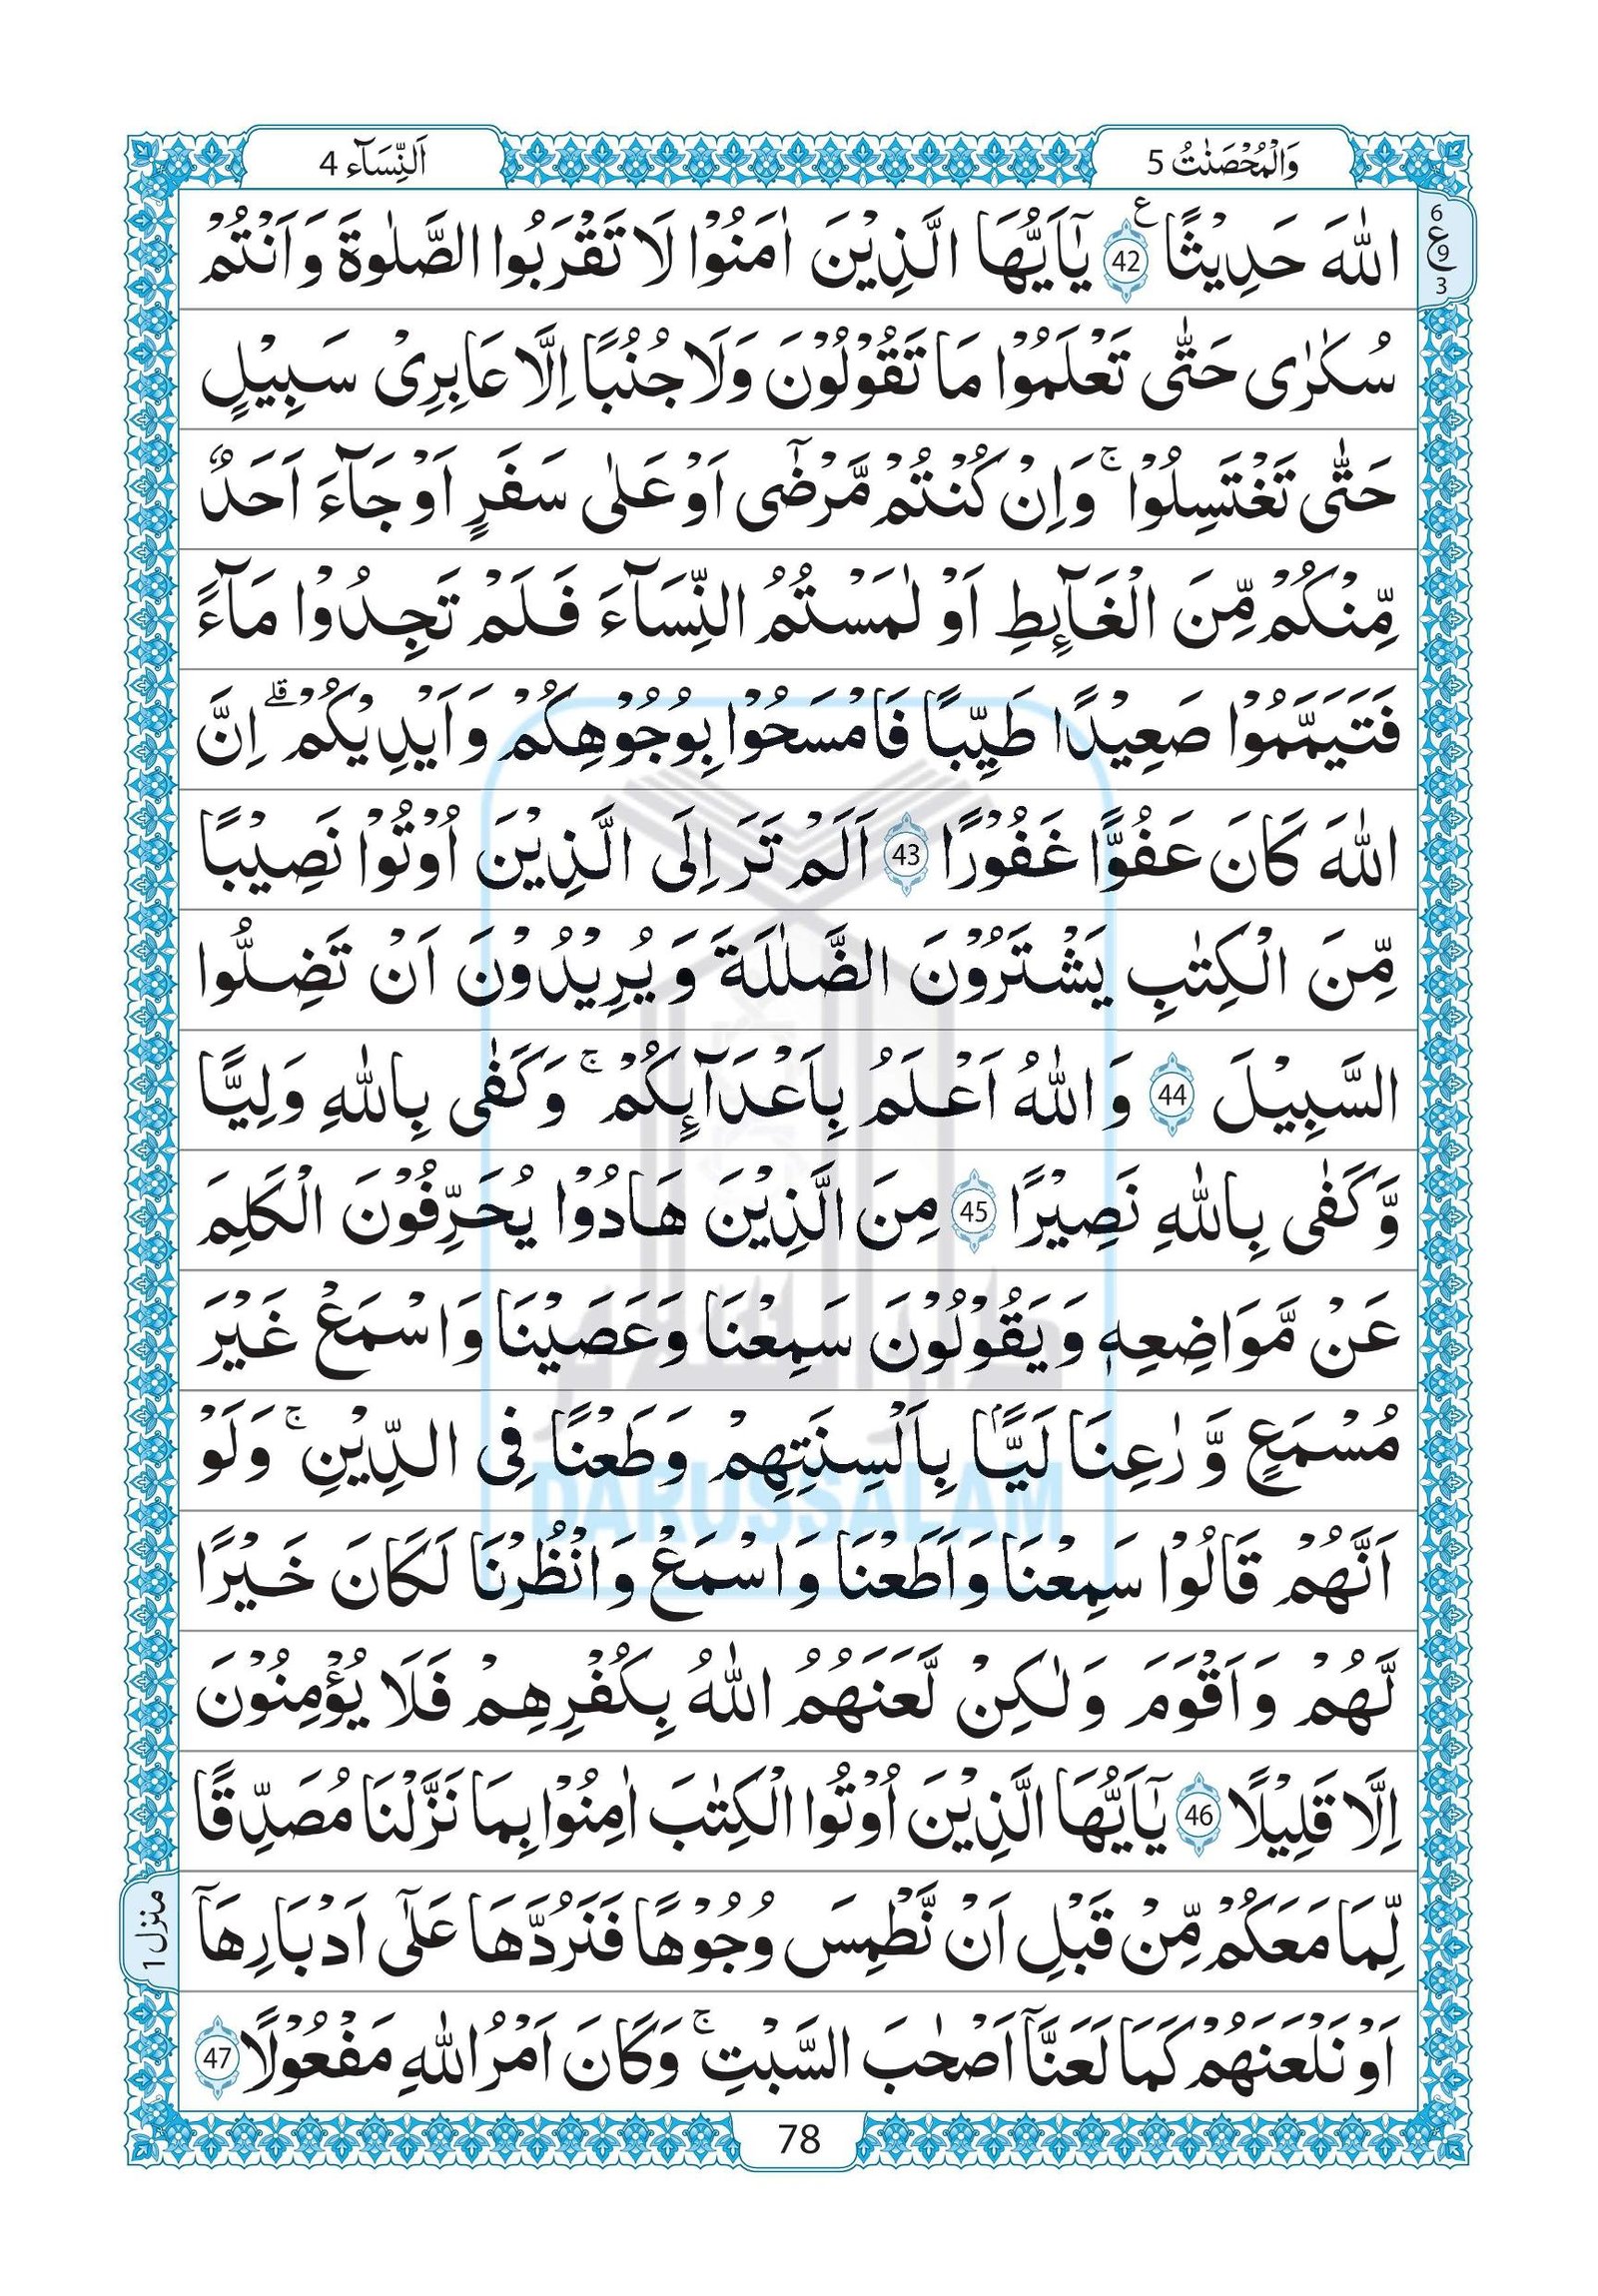 وَالْمُحْصَنٰتُ 5
اَلنِّسَآء 4
6
ع
9
3
اللّٰهَ حَدِيْثًا ع 42 يٰٓاَيُّهَا الَّذِيْنَ اٰمَنُوْا لَا تَقْرَبُوا الصَّلٰوةَ وَاَنْتُمْ
سُكٰرٰى حَتّٰى تَعْلَمُوْا مَا تَقُوْلُوْنَ وَلَا جُنُبًا اِلَّا عَابِرِيْ سَبِيْلٍ
حَتّٰى تَغْتَسِلُوْا ۚ وَاِنْ كُنْتُمْ مَّرْضٰٓى اَوْ عَلٰى سَفَرٍ اَوْ جَآءَ اَحَدٌ
مِّنْكُمْ مِّنَ الْغَآىِٕطِ اَوْ لٰمَسْتُمُ النِّسَآءَ فَلَمْ تَجِدُوْا مَآءً
فَتَيَمَّمُوْا صَعِيْدًا طَيِّبًا فَامْسَحُوْا بِوُجُوْهِكُمْ وَاَيْدِيْكُمْ ۗ اِنَّ
اللّٰهَ كَانَ عَفُوًّا غَفُوْرًا 43 اَلَمْ تَرَ اِلَى الَّذِيْنَ اُوْتُوْا نَصِيْبًا
مِّنَ الْكِتٰبِ يَشْتَرُوْنَ الضَّلٰلَةَ وَيُرِيْدُوْنَ اَنْ تَضِلُّوا
السَّبِيْلَ 44 وَاللّٰهُ اَعْلَمُ بِاَعْدَآىِٕكُمْ ۚ وَكَفٰى بِاللّٰهِ وَلِيًّا
وَّكَفٰى بِاللّٰهِ نَصِيْرًا 45 مِنَ الَّذِيْنَ هَادُوْا يُحَرِّفُوْنَ الْكَلِمَ
عَنْ مَّوَاضِعِهٖ وَيَقُوْلُوْنَ سَمِعْنَا وَعَصَيْنَا وَاسْمَعْ غَيْرَ
مُسْمَعٍ وَّرٰعِنَا لَيًّۢا بِاَلْسِنَتِهِمْ وَطَعْنًا فِى الدِّيْنِ ۚ وَلَوْ
اَنَّهُمْ قَالُوْا سَمِعْنَا وَاَطَعْنَا وَاسْمَعْ وَانْظُرْنَا لَكَانَ خَيْرًا
لَّهُمْ وَاَقْوَمَ وَلٰكِنْ لَّعَنَهُمُ اللّٰهُ بِكُفْرِهِمْ فَلَا يُؤْمِنُوْنَ
اِلَّا قَلِيْلًا 46 يٰٓاَيُّهَا الَّذِيْنَ اُوْتُوا الْكِتٰبَ اٰمِنُوْا بِمَا نَزَّلْنَا مُصَدِّقًا
لِّمَا مَعَكُمْ مِّنْ قَبْلِ اَنْ نَّطْمِسَ وُجُوْهًا فَنَرُدَّهَا عَلٰٓى اَدْبَارِهَآ
اَوْ نَلْعَنَهُمْ كَمَا لَعَنَّآ اَصْحٰبَ السَّبْتِ ۚ وَكَانَ اَمْرُ اللّٰهِ مَفْعُوْلًا 47
منزل 1
78
DARUSSALAM